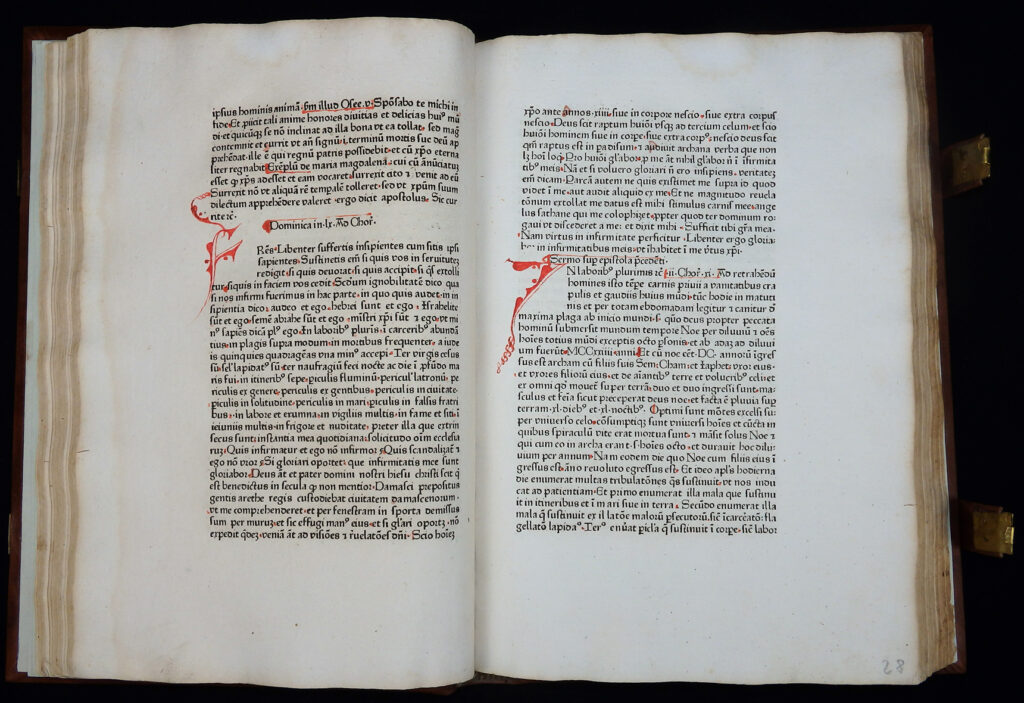 ipsius hominis animã· ẜm illud Osee·v·Spõsabo te michi in
fide·Et ꝓicit tali anime honores divitias et delicias huiꝰ mũ
di·et quicũqꝫ se nõ inclinat ad illa bona vt ea tollat· sed magꝭ
contemnit et currit vt añ signũ·i·terminũ mortis sue deũ ap
prehẽdat·ille ẽ qui regnũ patris possidebit·et cũ xp̃o eterna
liter regnabit·Exẽplũ de maria magdalena·cui cũ añũciatuꝫ
esset ꝙ xp̃s adesset et eam vocaret·surrexit cito ⁊ venit ad eũ
Surrexit nõ vt aliquã rẽ temꝑalẽ tolleret·sed vt xp̃um suum
dilectum apprehẽdere valeret·ergo dicit apostolus· Sic cur
rite rc̃·
Dominica in·lx·Ad Chor̃·
FRẽs·Libenter suffertis insipientes cum sitis ipsi
sapientes·Sustinetis em̃ si quis vos in seruitutẽ
redigit·si quis deuorat·si quis accipit·si qͥs extolli
tur·siquis in faciem vos cedit·Sc̃dum ignobilitatẽ dico qua
si nos infirmi fuerimus in hac parte·in quo quis audet·in in
sipientia dico·audeo et ego·hebrei sunt et ego·Israhelite
sũt et ego·semẽ abrahe sũt et ego·mĩstri xp̃i sũt ⁊ ego·vt mi
nꝰ sapiẽs dicã plꝰ ego·In laboribꝰ pluris·ĩ carceribꝰ abundã
tius·in plagis supra modum·in mortibus frequenter·a iude
is quinquies quadragẽas vna minꝰ accepi·Ter virgis cesus
sũ·sel̃ lapidatꝰ sũ·ter naufragiũ feci nocte ac die ĩ ꝓfũdo ma
ris fui·in itineribꝰ sepe·ꝑiculis fluminũ·ꝑiculꝭ latronũ·pe
riculis ex genere·ꝑiculis ex gentibus·ꝑiculis in ciuitate·
ꝑiculis in solitudine·ꝑiculis in mari·ꝑiculis in falsis fratri
bus·in labore et erumna·in vigiliis multis·in fame et siti·ĩ
ieiuniis multis·in frigore et nuditate·preter illa que extrin
secus sunt·instantia mea quotidiana·solicitudo oĩm ecclesia
ruꝫ·Quis infirmatur et ego nõ infirmor·Quis scandalizat̃ ⁊
ego nõ vror·Si gloriari oportet·que infirmitatis mee sunt
gloriabor·Deus ãt et pater domini nostri hiesu christi scit qͥ
est benedictus in secula ꝙ non mentior·Damasci prepositus
gentis arethe regis custodiebat ciuitatem damascenorum·
vt me comprehenderet·et per fenestram in sporta demissus
sum per muruꝫ·et sic effugi manꝰ eius·et si gl̃ari oportꝫ·nõ
expedit qͥdeꝫ·veniã ãt ad visiões ⁊ r̃uelatões dñi· Scio hoĩeꝫ
xp̃o ante annos·xiiii·siue in corpore nescio·siue extra corpus
nescio·Deus scit raptum huiõi vsqꝫ ad tercium celum·et scio
huiõi hominem siue in corpe·siue extra corpꝰ·nescio deus scit
qm̃ raptus est in ꝑadisum·⁊ audiuit archana verba que non
lꝫ hoĩ loqͥ·Pro huiõi gl̃abor·ꝓ me ãt nihil gl̃abor nͥ ĩ ĩfirmita
tibꝰ meis·Nã et si voluero gloriari nõ ero insipiens· veritateꝫ
em̃ dicam·Parcã autem ne quis existimet me supra id quod
videt ĩ me·aut audit aliquid ex me·Et ne magnitudo reuela
tõnum extollat me datus est mihi stimulus carnis mee·ange
lus sathane qui me colophizet·ꝓpter quod ter dominum ro·
gaui vt discederet a me· et dixit mihi· Sufficit tibi gr̃a mea·
Nam virtus in infirmitate perficitur· Libenter ergo gloria·
bor in infirmitatibus meis·vt ĩhabitet ĩ me vͥtus xp̃i·
Sermo sup epistola p̃cedẽti·
IN laboribꝰ plurimis rc̃·ii·Chor̃·xi· Ad retrahẽdũ
homines isto tẽpe carnis priuii a vanitatibus cra
pulis et gaudiis huius mũdi·tũc hodie in matuti
nis et per totam ebdomadam legitur ⁊ canitur d̃
maxima plaga ab inicio mundi·s· quo deus propter peccata
hominũ submersit mundum tempore Noe per diluuiũ ⁊ oẽs
hoĩes totius mũdi exceptis octo p̃sonis·et ab adaz ad diluui
um fuerũt MCCxxiiii anni·Et cũ noe eẽt·DC· annorũ ĩgres
sus est archam cũ filiis suis Sem·Cham·et Iaphet·vxor eius·
et vxores filiorũ eius·et de aĩantibꝰ terre et volucribꝰ celi·et
ex omni qͦd mouet̃ super terrã·duo et duo ingressi sunt·ma·
sculus et fem̃a sicut preceperat deus noe·et facta ẽ pluuia sup
terram·xl·diebꝰ et·xl·noctibꝰ· Optimi sunt mõtes excelsi su·
per vniuerso celo·cõsumptiqꝫ sunt vniuersi hoĩes et cũcta in
quibus spiraculũ vite erat mortua sunt·⁊ mãsit solus Noe ⁊
qui cum eo in archa erant·s·hoĩes octo·et durauit hoc dilu·
uium per annum·Nam eodem die quo Noe cum filiis eius ĩ
gressus est·ãno reuoluto egressus est· Et ideo apl̃s hodierna
die enumerat multas tribulatõnes qͣs sustinuit·vt nos indu
cat ad patientiam·Et primo enumerat illa mala que sustinu
it in itineribus et ĩ mari siue in terra· Secũdo enumerat illa
mala qͣ sustinuit ex illatõe malorũ p̃secutoꝝ·sic̃ ĩcarc̃atõ·fla
gellatõ lapidaᵒ·Terᵒ enũat ꝑic̃la qͣ sustinuit ĩ corpe·sic̃ labor
28